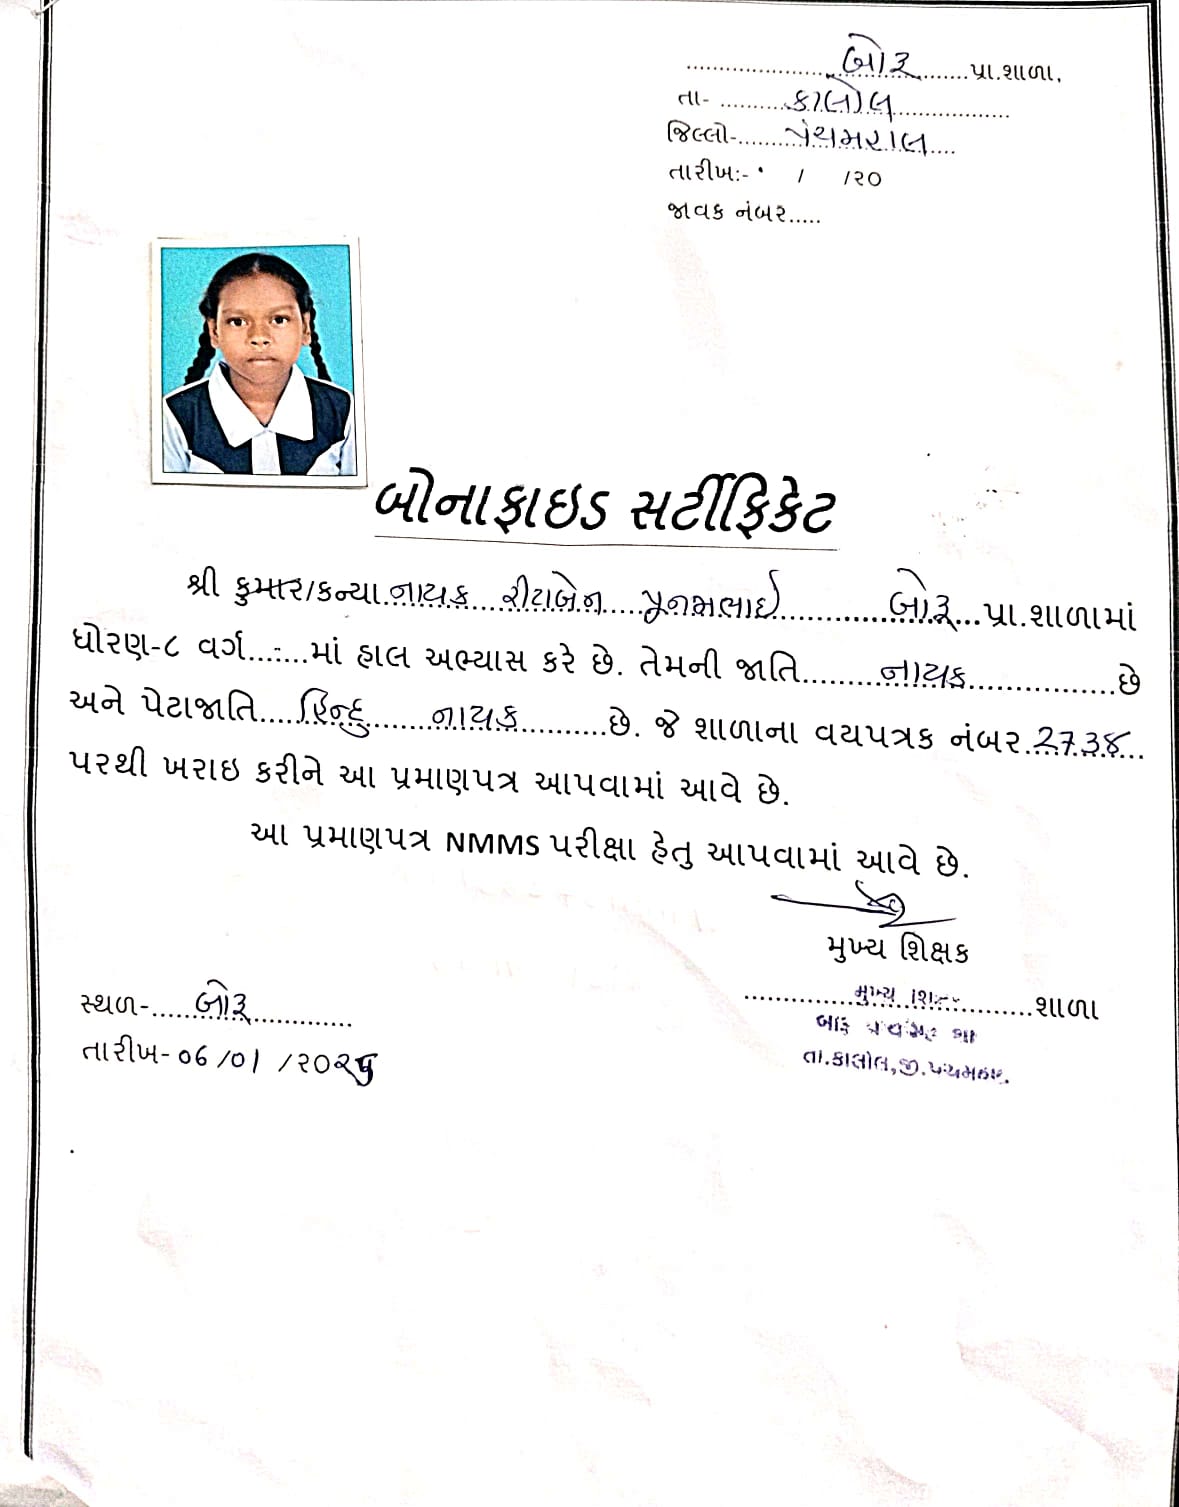 બોરૂ પ્રા.શાળા.
તા- કાલોલ
જિલ્લો- પંચમહાલ
તારીખ:- / /૨૦
જાવક નંબર.....
બોનાફાઇડ સર્ટીફિકેટ
શ્રી કુમાર/કન્યા નાયક રીટાબેન પૂનમભાઈ બોરૂ પ્રા.શાળામાં
ધોરણ-૮ વર્ગ..-...માં હાલ અભ્યાસ કરે છે. તેમની જાતિ નાયક છે
અને પેટાજાતિ હિન્દુ નાયક છે. જે શાળાના વયપત્રક નંબર 2738
પરથી ખરાઇ કરીને આ પ્રમાણપત્ર આપવામાં આવે છે.
આ પ્રમાણપત્ર NMMS પરીક્ષા હેતુ આપવામાં આવે છે.
મુખ્ય શિક્ષક
સ્થળ- બોરૂ
શાળા
મુખ્ય
તારીખ- ૦6/૦1/૨૦૨૫
તા.કાલોલ,જી.પંચમહાલ.